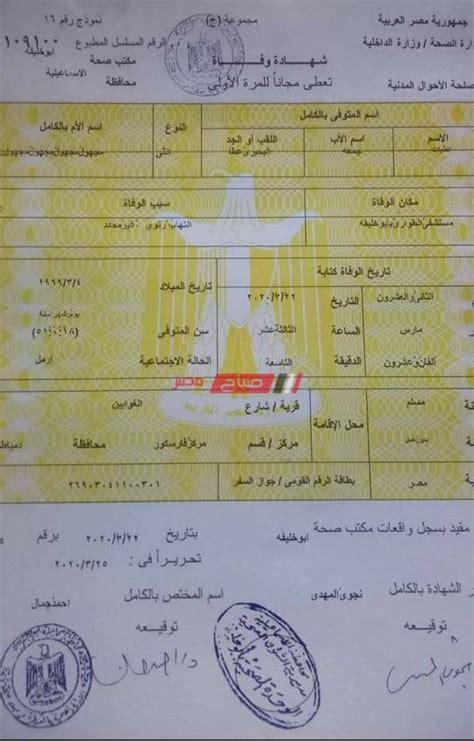 جمهورية مصر العربية
مجموعة (ج)
نموذج رقم ١٦
وزارة الصحة / وزارة الداخلية
شهادة وفاة
الرقم المسلسل المطبوع
١٠٩١٠٠
تعطى مجاناً للمرة الأولى
مكتب صحة
ابوخليفه
مصلحة الأحوال المدنية
محافظة
الاسماعيلية
اسم المتوفى بالكامل
النوع
اسم الأم بالكامل
الاسم
اسم الأب
اللقب أو الجد
جمعه
مجهول مجهول مجهول مجهول
مكان الوفاة
سبب الوفاة
مستشفى الطوارئ بابوخليفه
التهاب رئوي غير محدد
تاريخ الوفاة كتابة
تاريخ الميلاد
١٩٦٩/٣/٤
الثانى والعشرون
التاريخ
٢٠٢٠/٣/٢٢
يوم/شهر/سنة
مارس
الساعة
الثالثة عشر
سن المتوفى
(٥١/٠٠/١٨)
ألفان وعشرون
الدقيقة
التاسعة
الحالة الاجتماعية
ارمل
صباح مصر
مسلم
محل الإقامة
قرية / شارع
الغوابين
بدون عمل
مركز / قسم
مركز فارسكور
محافظة
دمياط
مصر
بطاقة الرقم القومى / جواز السفر
٢٦٩٠٣٠٤١١٠٠٣٠١
مقيد بسجل واقعات مكتب صحة
ابوخليفه
بتاريخ
٢٠٢٠/٣/٢٢
برقم
تحريراً فى :
٢٠٢٠/٣/٢٥
الشهادة بالكامل
نجوى المهدى
اسم المختص بالكامل
احمد جمال
توقيعه
توقيعه